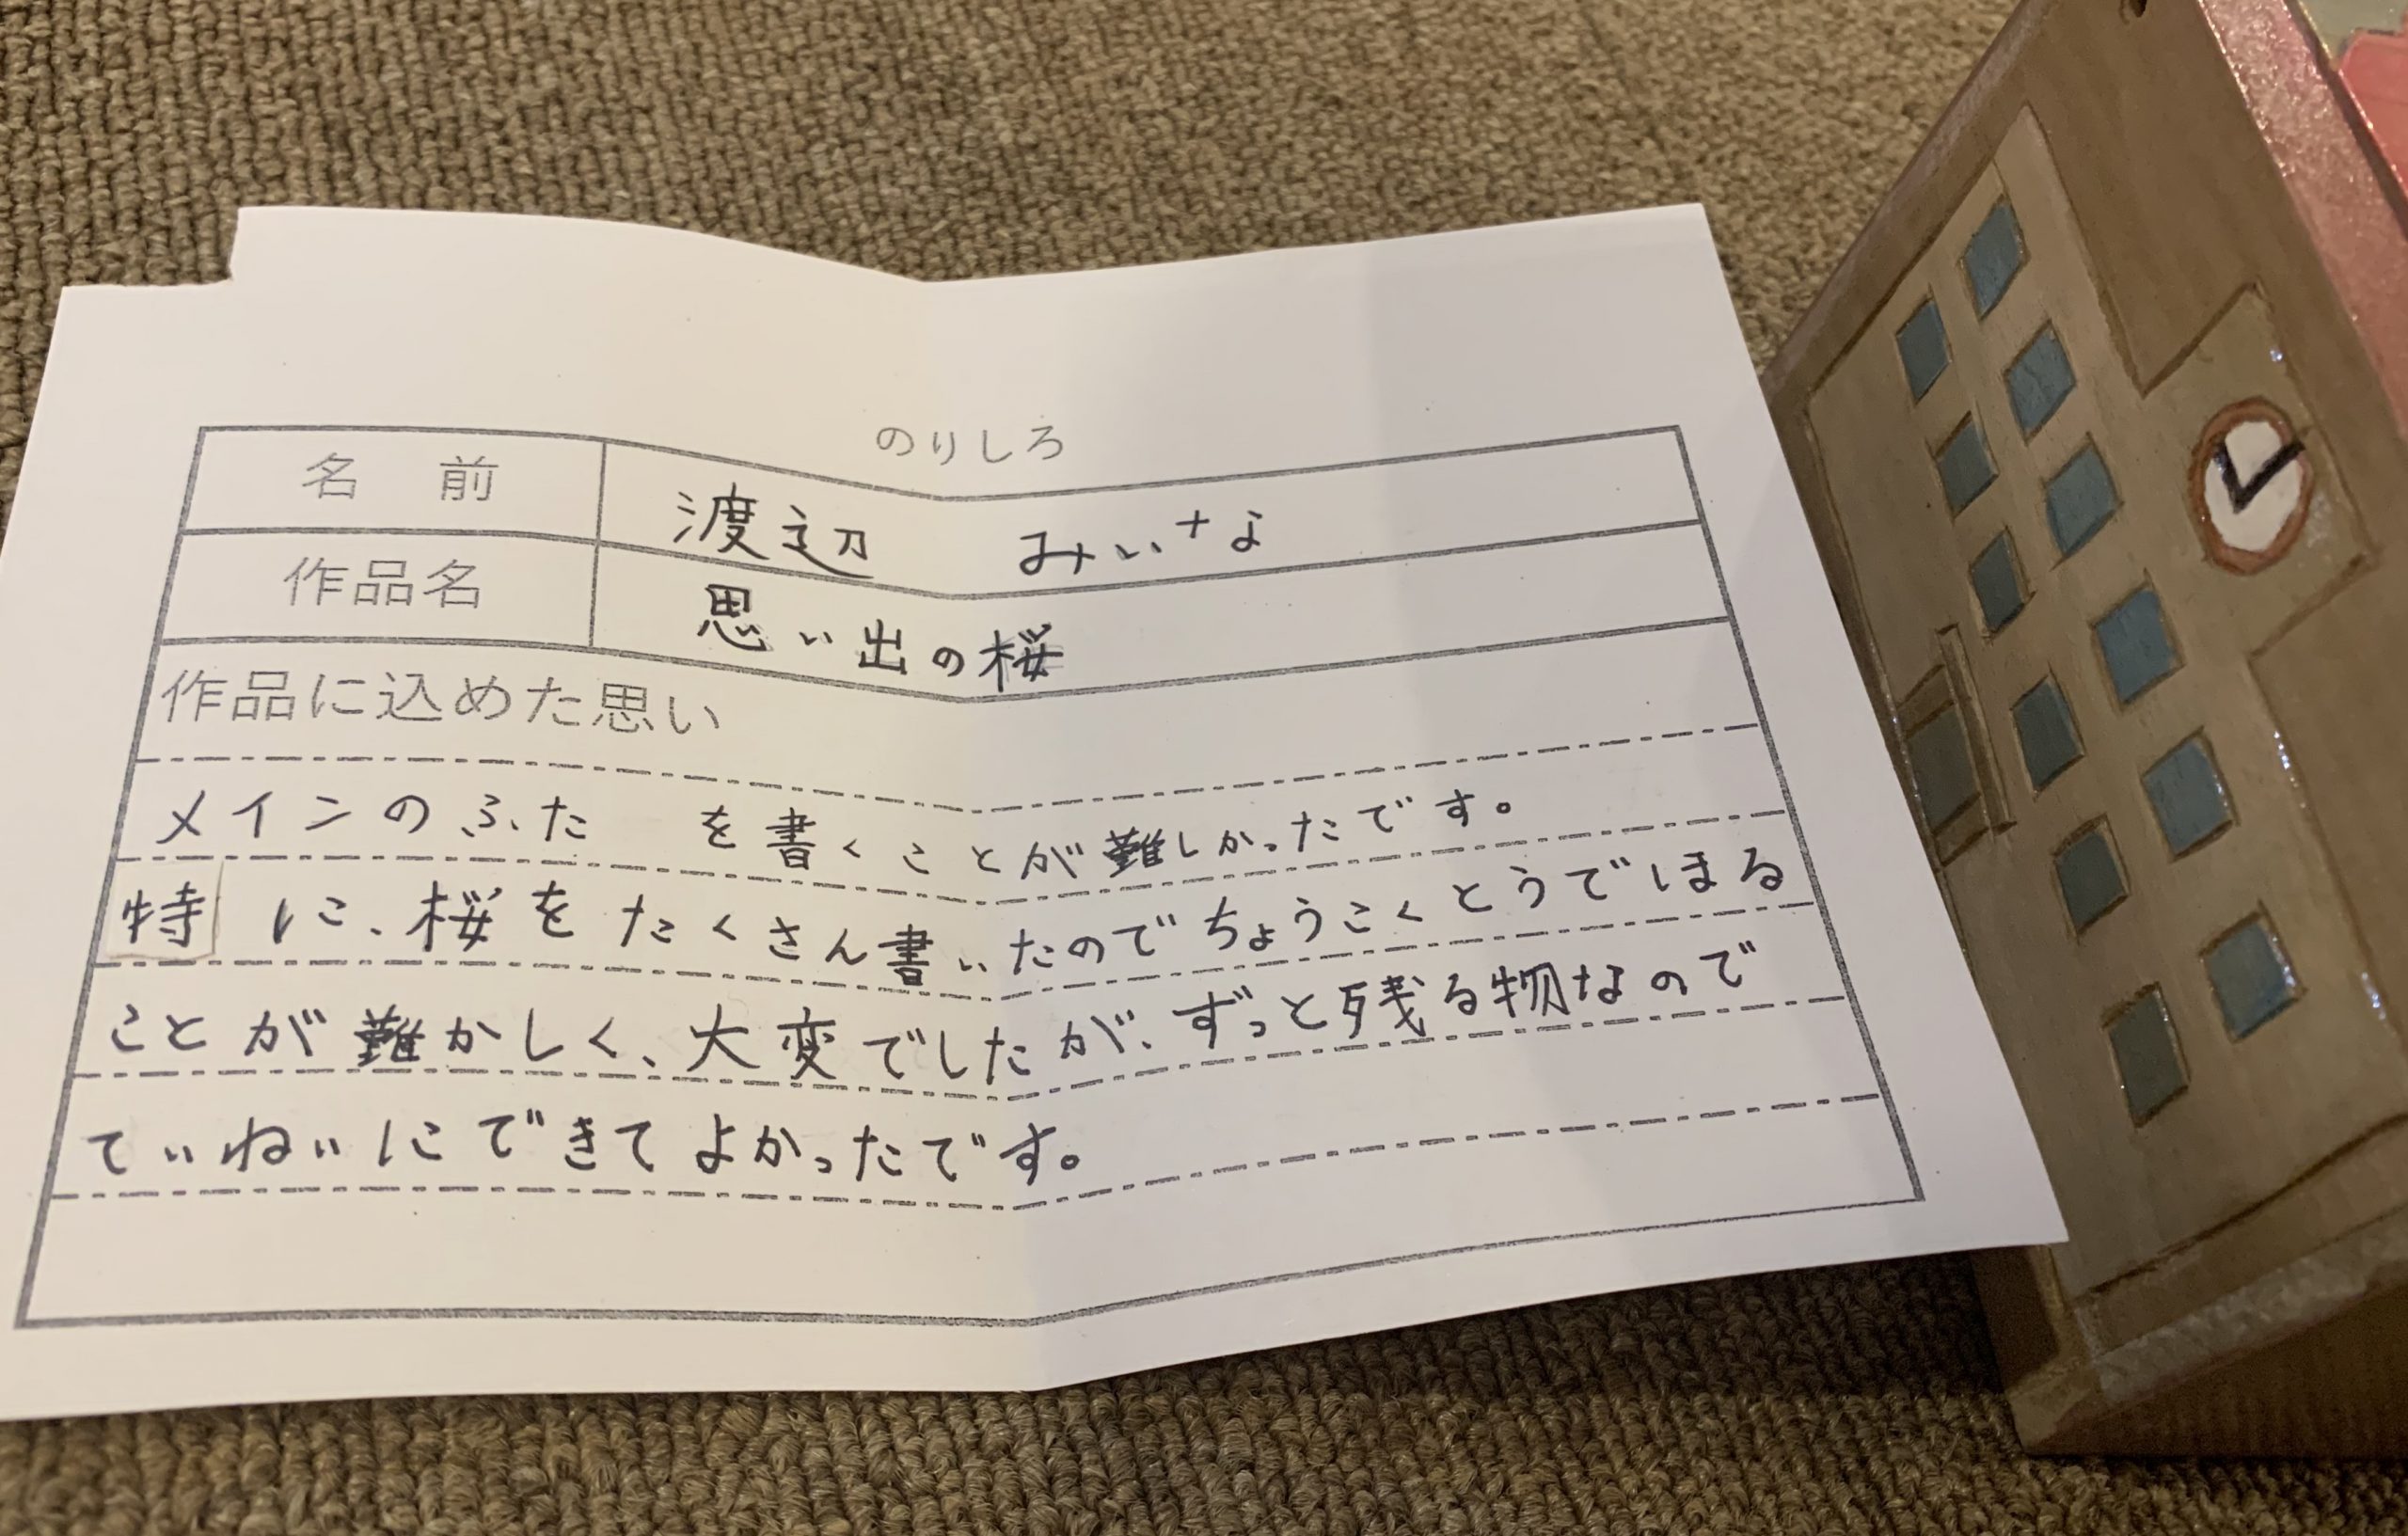 のりしろ
名前 渡辺 みいな
作品名 思い出の桜
作品に込めた思い
メインのふた を書くことが難しかったです。
特に、桜をたくさん書いたのでちょうこくとうでほる
ことが難かしく、大変でしたが、ずっと残る物なので
ていねいにできてよかったです。